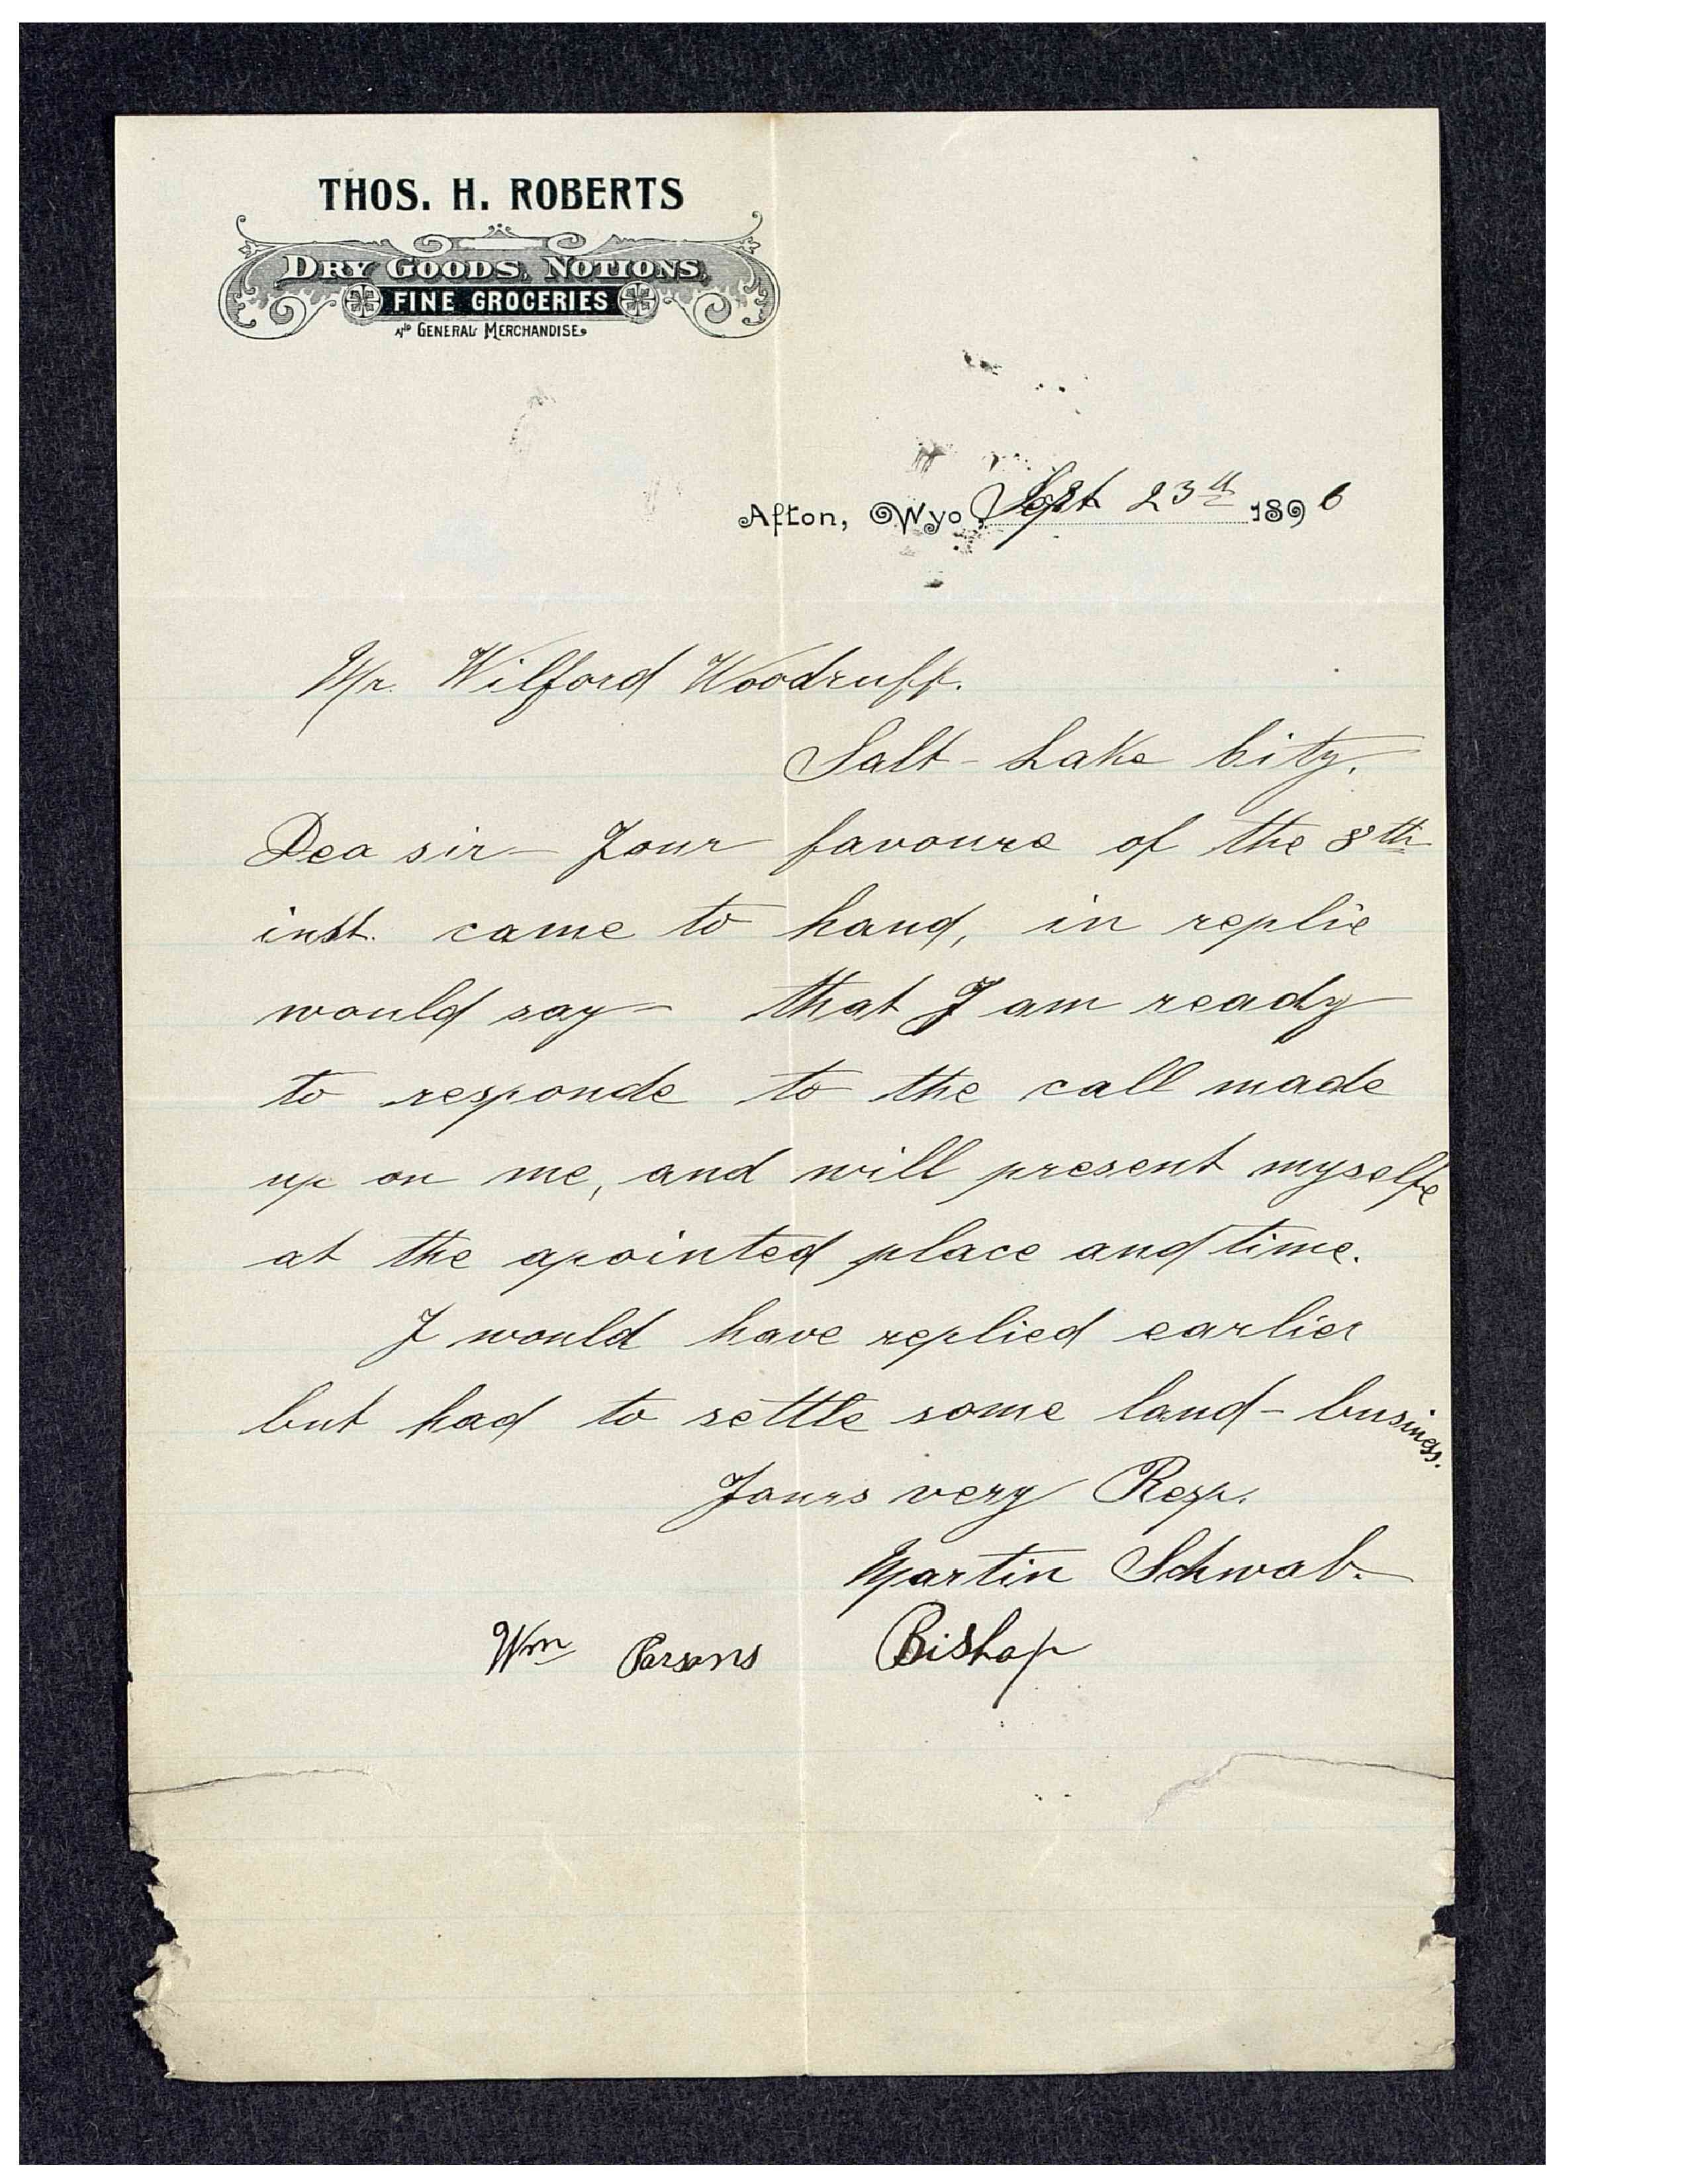 THOS. H. ROBERTS
DRY GOODS, NOTIONS,
FINE GROCERIES
AND GENERAL MERCHANDISE
Afton, Wyo, Sept 23th 1896
Mr. Wilford Woodruff.
Salt-Lake City.
Dea sir - Your favoure of the 8th
inst. came to hand, in replie
would say - that I am ready
to responde to the call made
up on me, and will present myselfe
at the apointed place and time.
I would have replied earlier
but had to settle some land-business.
Yours very Resp.
Martin Schwab.
Wm Parsons Bishop